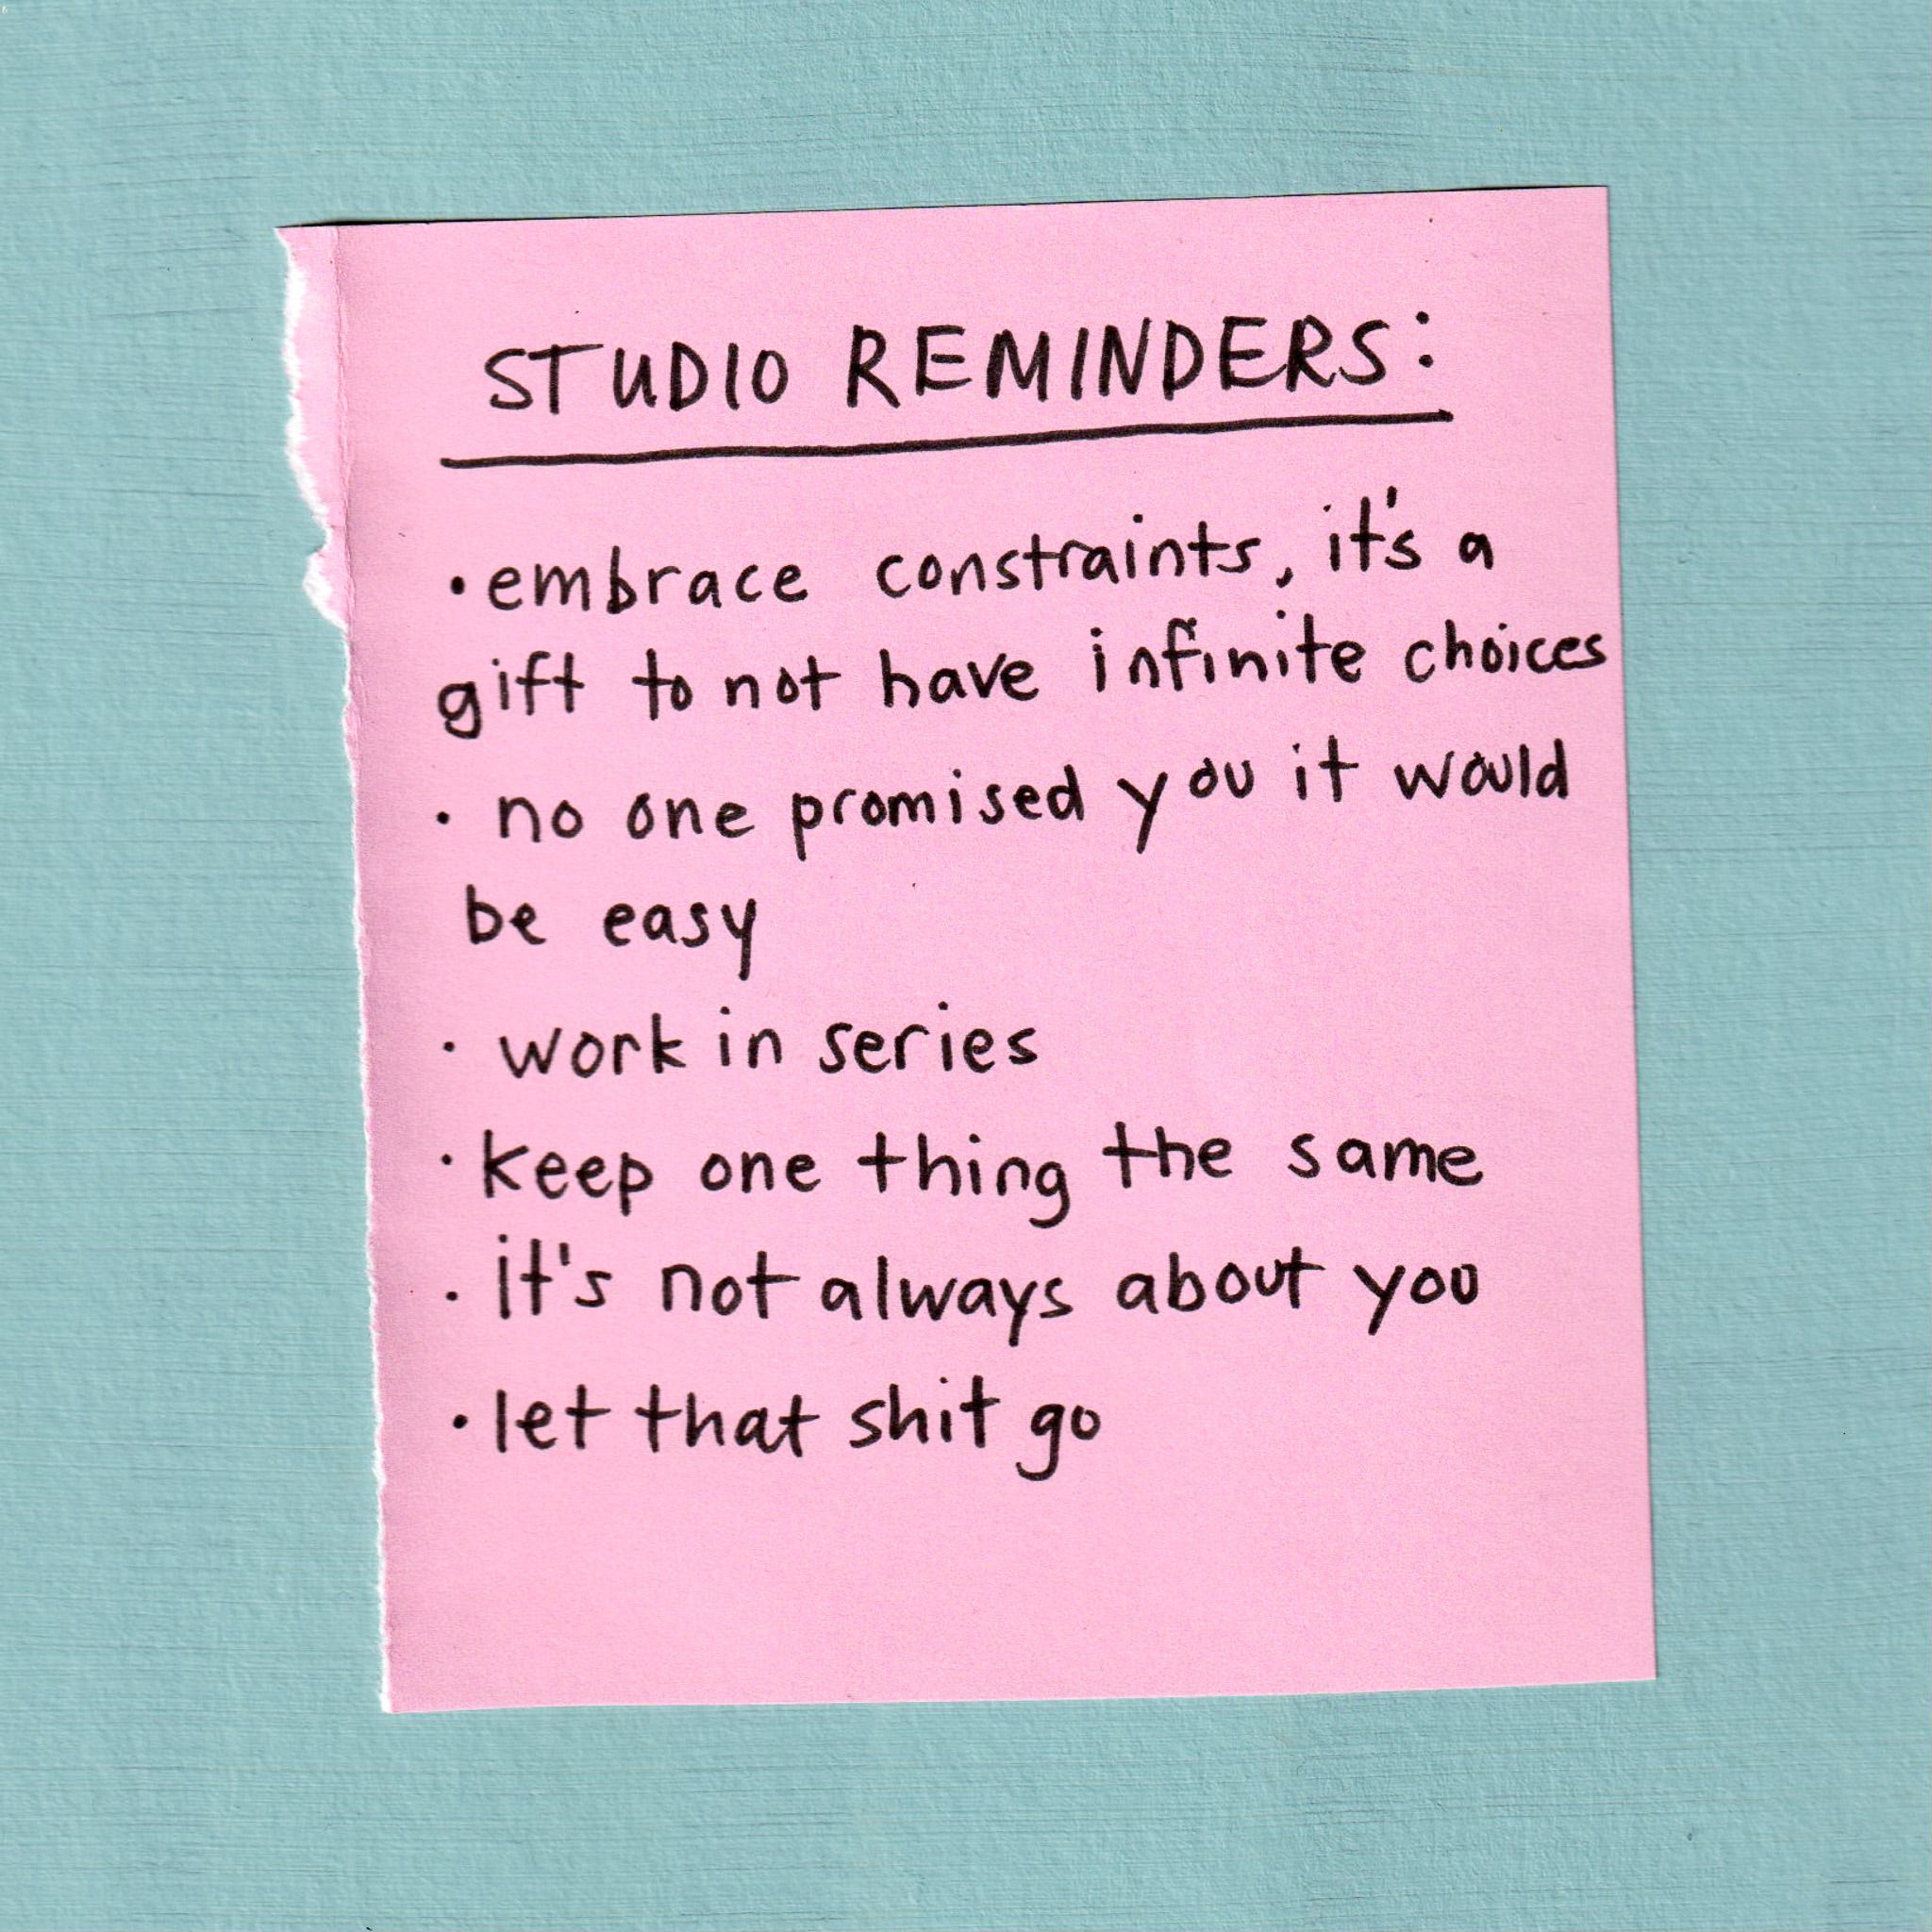 STUDIO REMINDERS:
• embrace constraints, it's a
gift to not have infinite choices
• no one promised you it would
be easy
• work in series
• keep one thing the same
• it's not always about you
• let that shit go